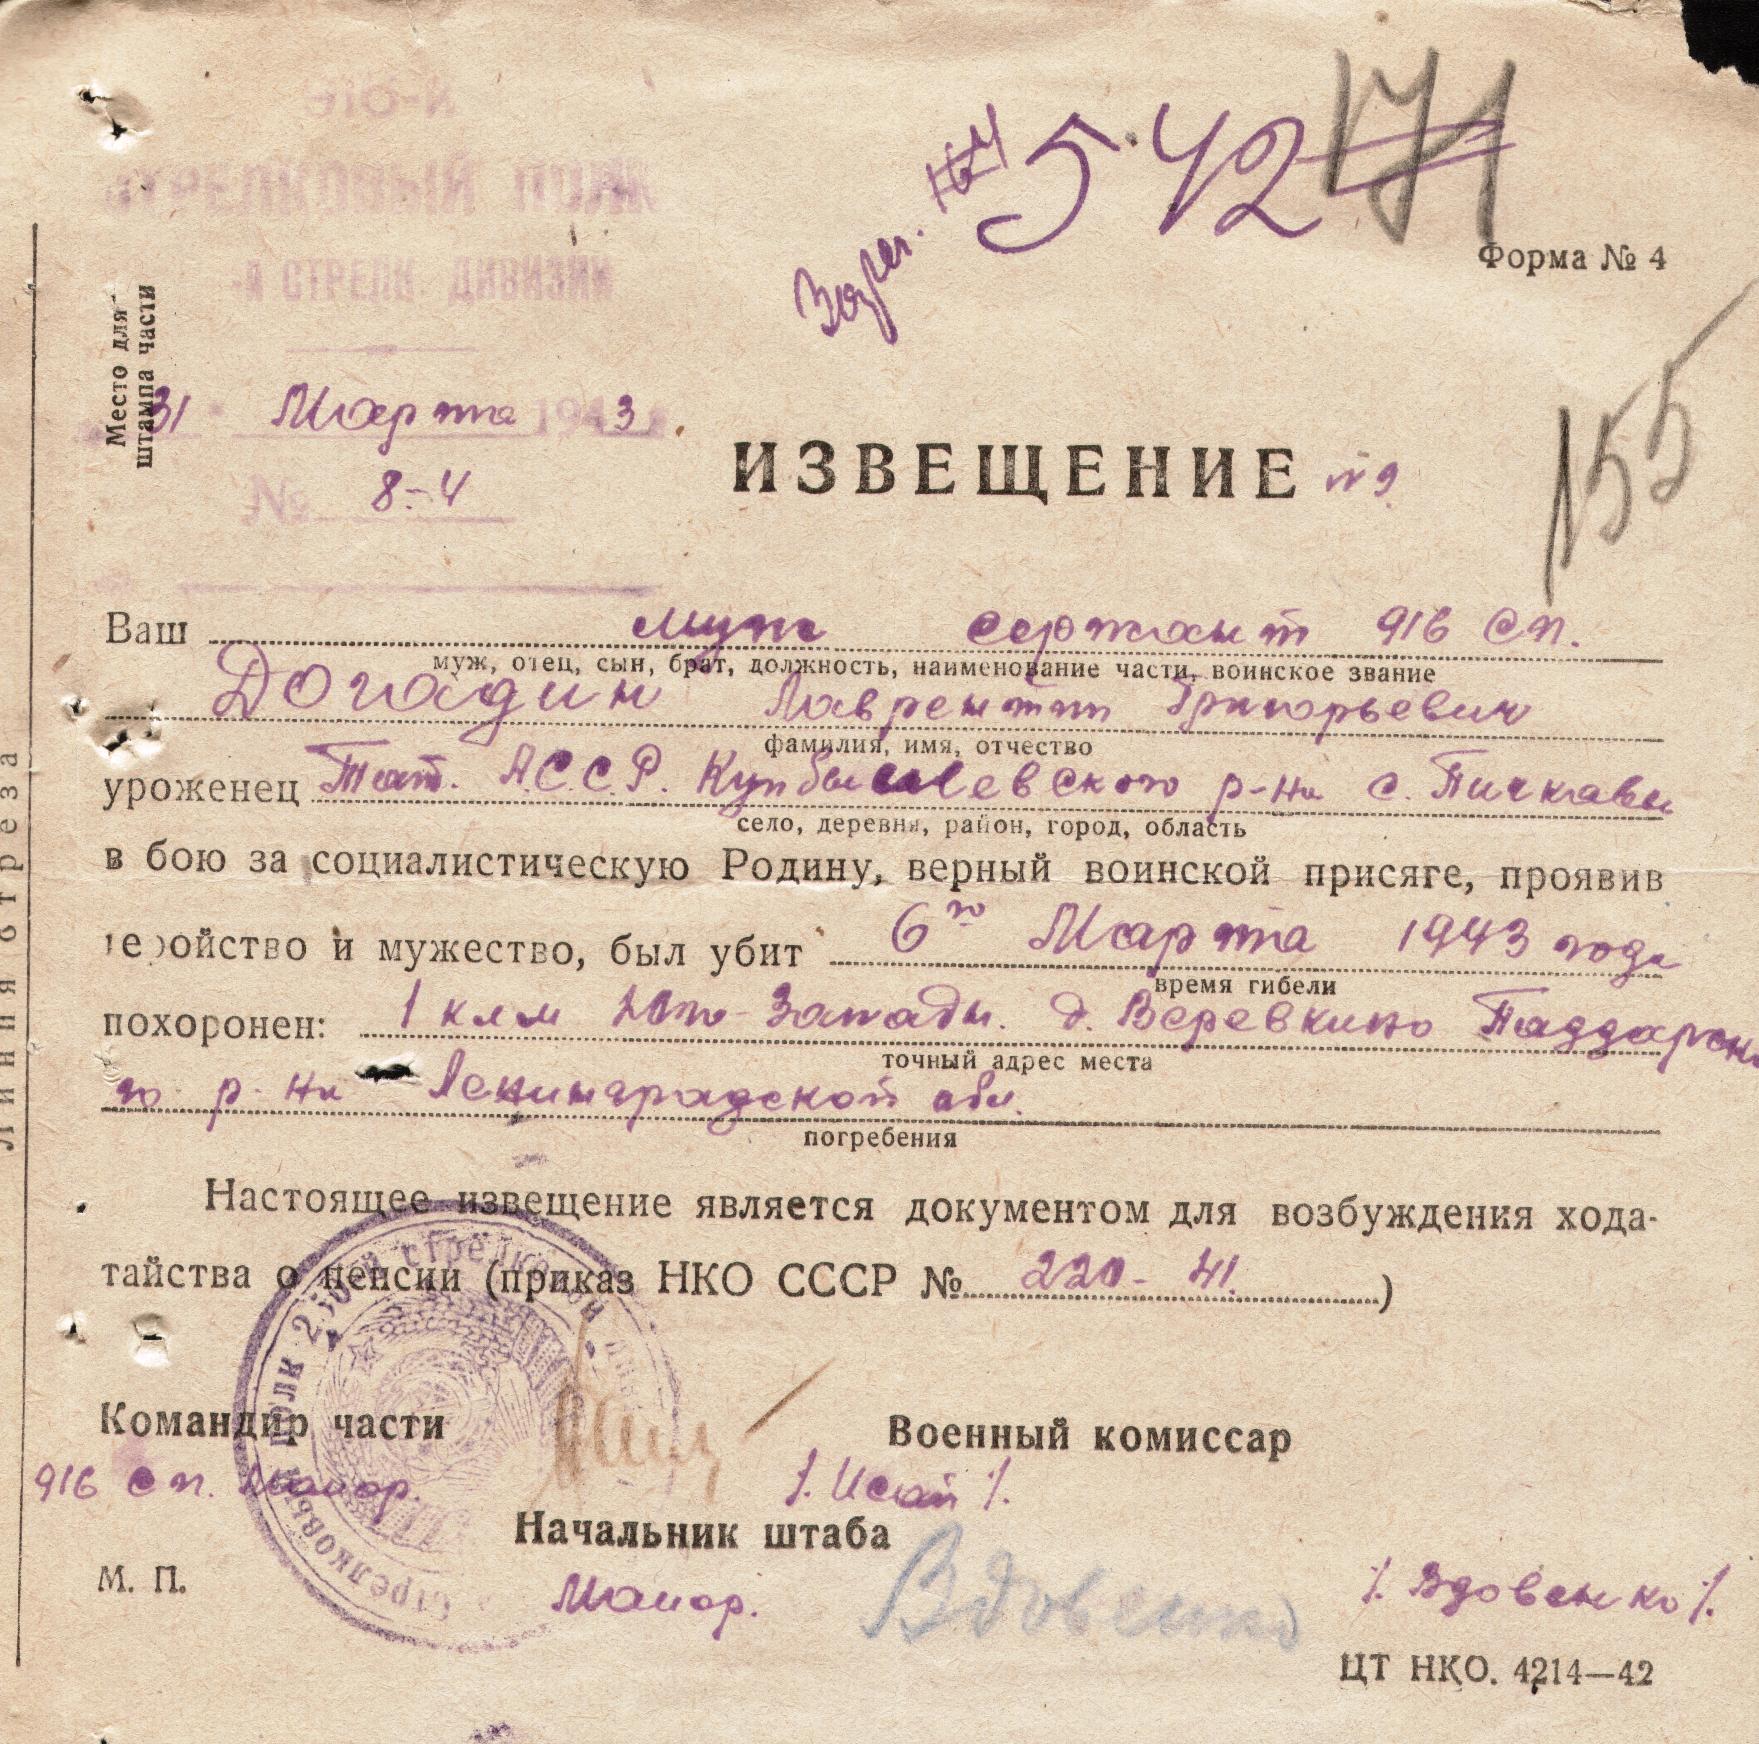 916-й
СТРЕЛКОВЫЙ ПОЛК
-й СТРЕЛК. ДИВИЗИИ
Место для
штампа части
31 Марта 1943
№ 8-4
542
171
Форма № 4
155
ИЗВЕЩЕНИЕ №9
Ваш муж сержант 916 сп.
муж, отец, сын, брат, должность, наименование части, воинское звание
Догадин Лаврентий Григорьевич
фамилия, имя, отчество
уроженец Тат. А.С.С.Р. Куйбышевского р-на с. Пичкасы
село, деревня, район, город, область
в бою за социалистическую Родину, верный воинской присяге, проявив
геройство и мужество, был убит 6го Марта 1943 года
время гибели
похоронен: 1 клм Юго-Запады. д. Веревкино Паддорско
точный адрес места
го р-на Ленинградской обл.
погребения
Настоящее извещение является документом для возбуждения хода-
тайства о пенсии (приказ НКО СССР № 220-41.)
Командир части
Военный комиссар
916 сп. Майор.
/. Исай /.
Начальник штаба
Майор. Вдовенко /. Вдовенко /.
М. П.
ЦТ НКО. 4214—42
Линия отреза